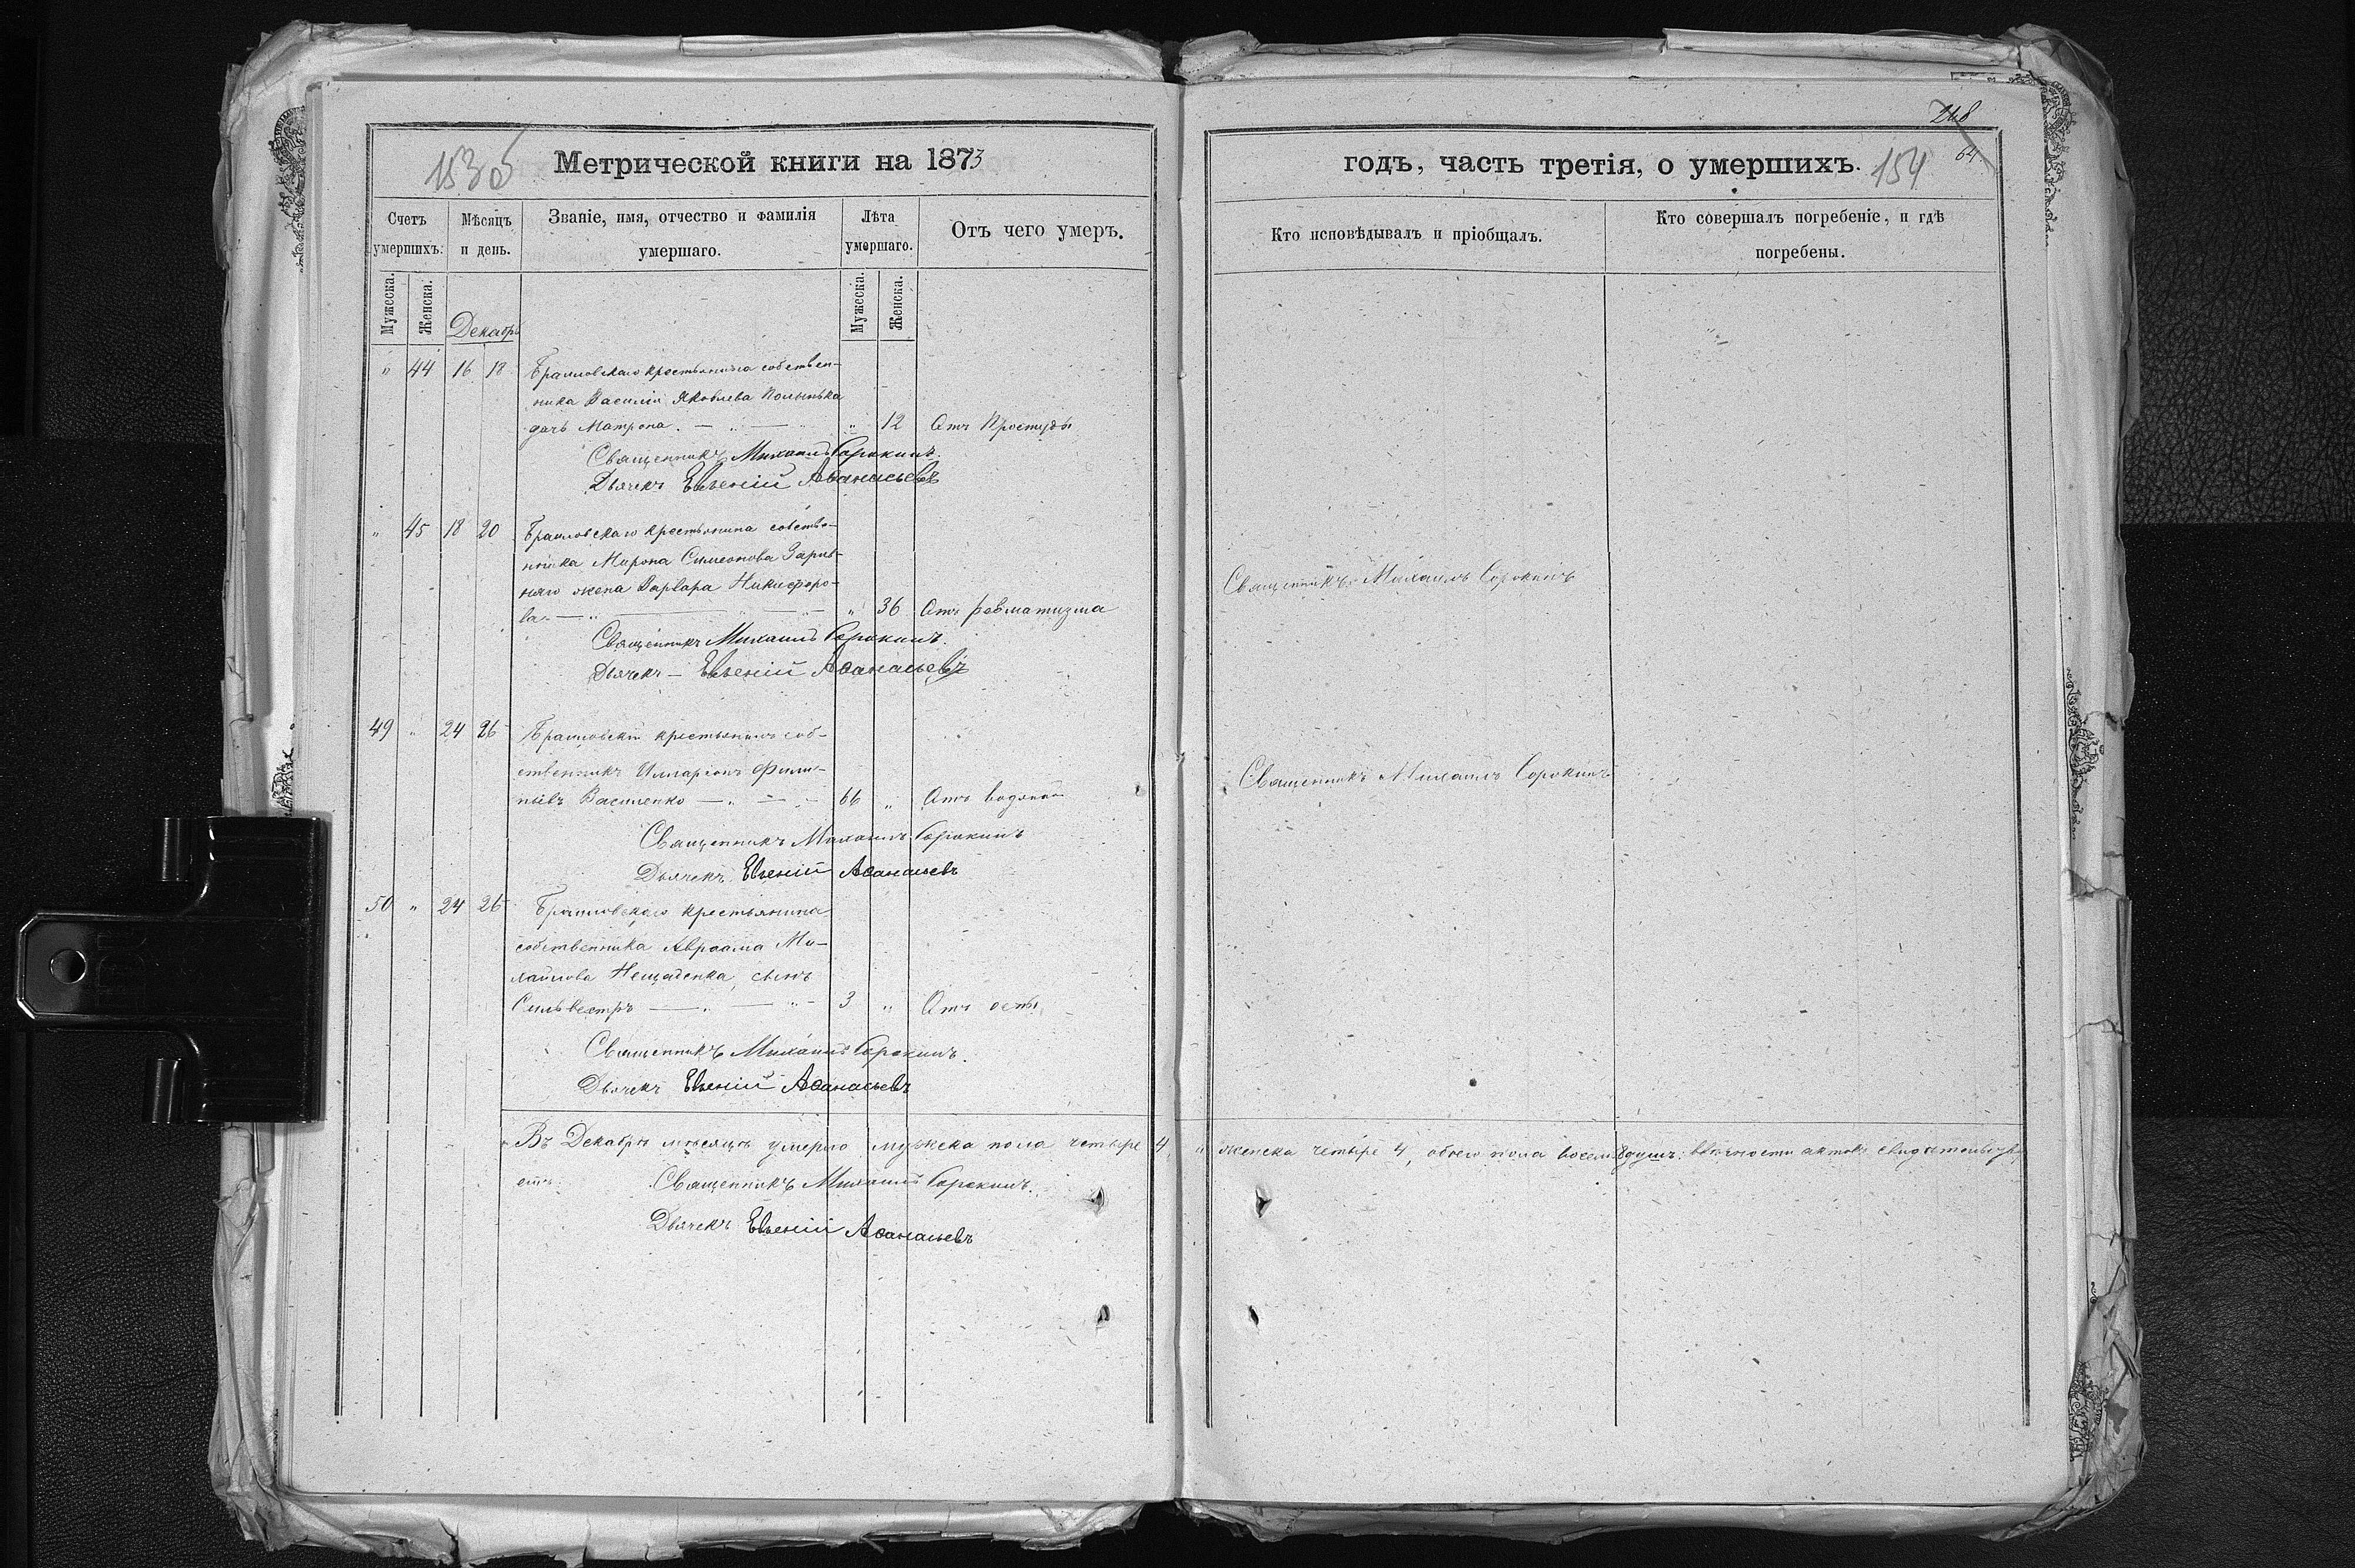 153об
Метрической книги на 1873
Счетъ умершихъ.
Мѣсяцъ и день.
Званіе, имя, отчество и фамилія умершаго.
Лѣта умершаго.
Отъ чего умеръ.
Мужеска.
Женска.
Декабрь
Мужеска.
Женска.
" 44 16 18 Браиловскаго крестьянина собствен-
ника Василія Яковлева
дочь Матрона. — " — " 12 Отъ простуды
Священникъ Михаилъ Сорокинъ.
Дьячекъ Евгеній Аѳанасьевъ
" 45 18 20 Браиловскаго крестьянина собстве-
нника Мирона Симеонова Зарив-
няго жена Варвара Никифоро-
ва — " — " 36 Отъ ревматизма
Священникъ Михаилъ Сорокинъ.
Дьячекъ — Евгеній Аѳанасьевъ
49 " 24 26 Браиловскій крестьянинъ соб-
ственникъ Илларіонъ Филип-
повъ Василенко — " — 66 " Отъ водянки
Священникъ Михаилъ Сорокинъ
Дьячекъ Евгеній Аѳанасьевъ
50 " 24 26 Браиловскаго крестьянина
собственника Авраама Ми-
хайлова Нещаденка, сынъ
Сильвестръ — " — " 3 " Отъ оспы
Священникъ Михаилъ Сорокинъ.
Дьячекъ Евгеній Аѳанасьевъ
Въ Декабрѣ мѣсяцѣ умерло мужеска пола четыре 4
Священникъ Михаилъ Сорокинъ.
Дьячекъ Евгеній Аѳанасьевъ
248
64
годъ, часть третія, о умершихъ. 154
Кто исповѣдывалъ и пріобщалъ.
Кто совершалъ погребеніе, и гдѣ погребены.
Священникъ Михаилъ Сорокинъ
Священникъ Михаилъ Сорокинъ
женска четыре 4, обоего пола восемь 8 душъ.